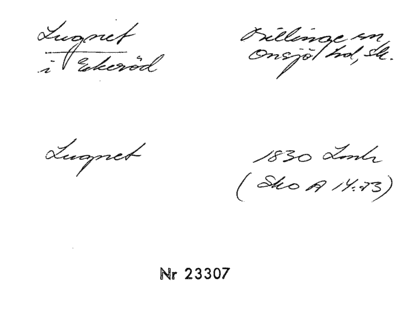 Lugnet
i Ekeröd
Billinge sn,
Onsjö hd, Sk.
Lugnet
1830 Lmtr
(Sko A 14:73)
Nr 23307